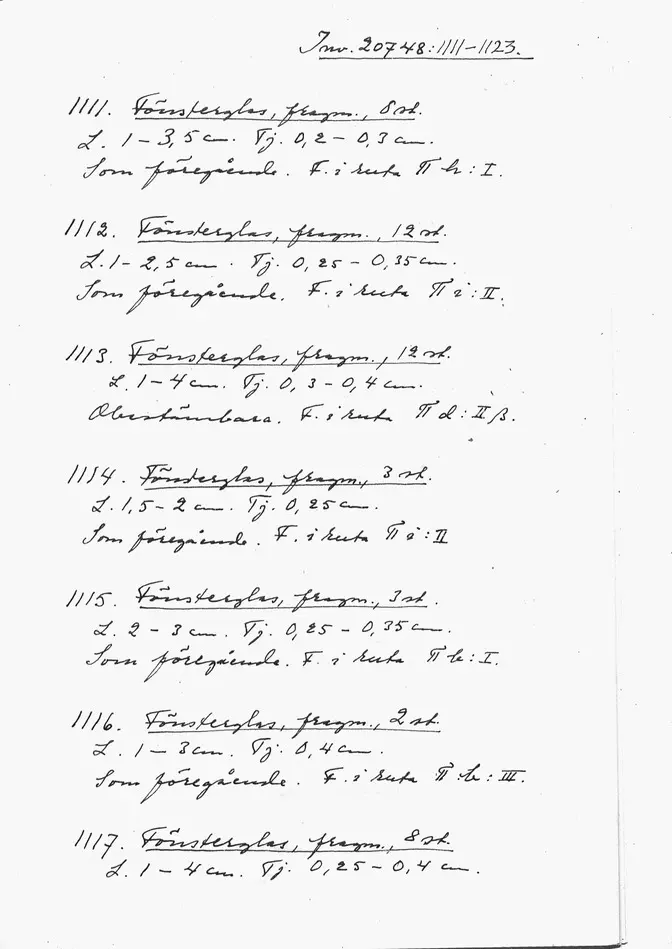 Inv. 20748:1111-1123.
1111. Fönsterglas, fragm., 8 st.
L. 1-3,5 cm. Tj. 0,2-0,3 cm.
Som föregående. F. i ruta Π h: I.
1112. Fönsterglas, fragm., 12 st.
L. 1-2,5 cm. Tj. 0,25-0,35 cm.
Som föregående. F. i ruta Π i: II.
1113. Fönsterglas, fragm., 12 st.
L. 1-4 cm. Tj. 0,3-0,4 cm.
Obestämbara. F. i ruta Π d: II β.
1114. Fönsterglas, fragm., 3 st.
L. 1,5-2 cm. Tj. 0,25 cm.
Som föregående. F. i ruta Π i: II
1115. Fönsterglas, fragm., 3 st.
L. 2-3 cm. Tj. 0,25-0,35 cm.
Som föregående. F. i ruta Π k: I.
1116. Fönsterglas, fragm., 2 st.
L. 1-3 cm. Tj. 0,4 cm.
Som föregående. F. i ruta Π k: III.
1117. Fönsterglas, fragm., 8 st.
L. 1-4 cm. Tj. 0,25-0,4 cm.